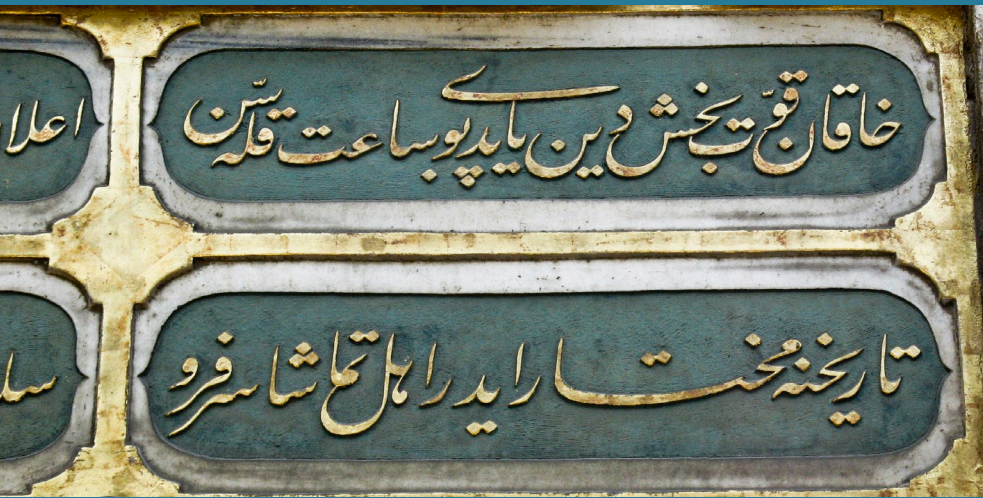 خاقان قوّت بخش دين ياپدى بو ساعت قله سّن
اعلا
تاريخنه مختار ايدر اهل تماشا سرفرو